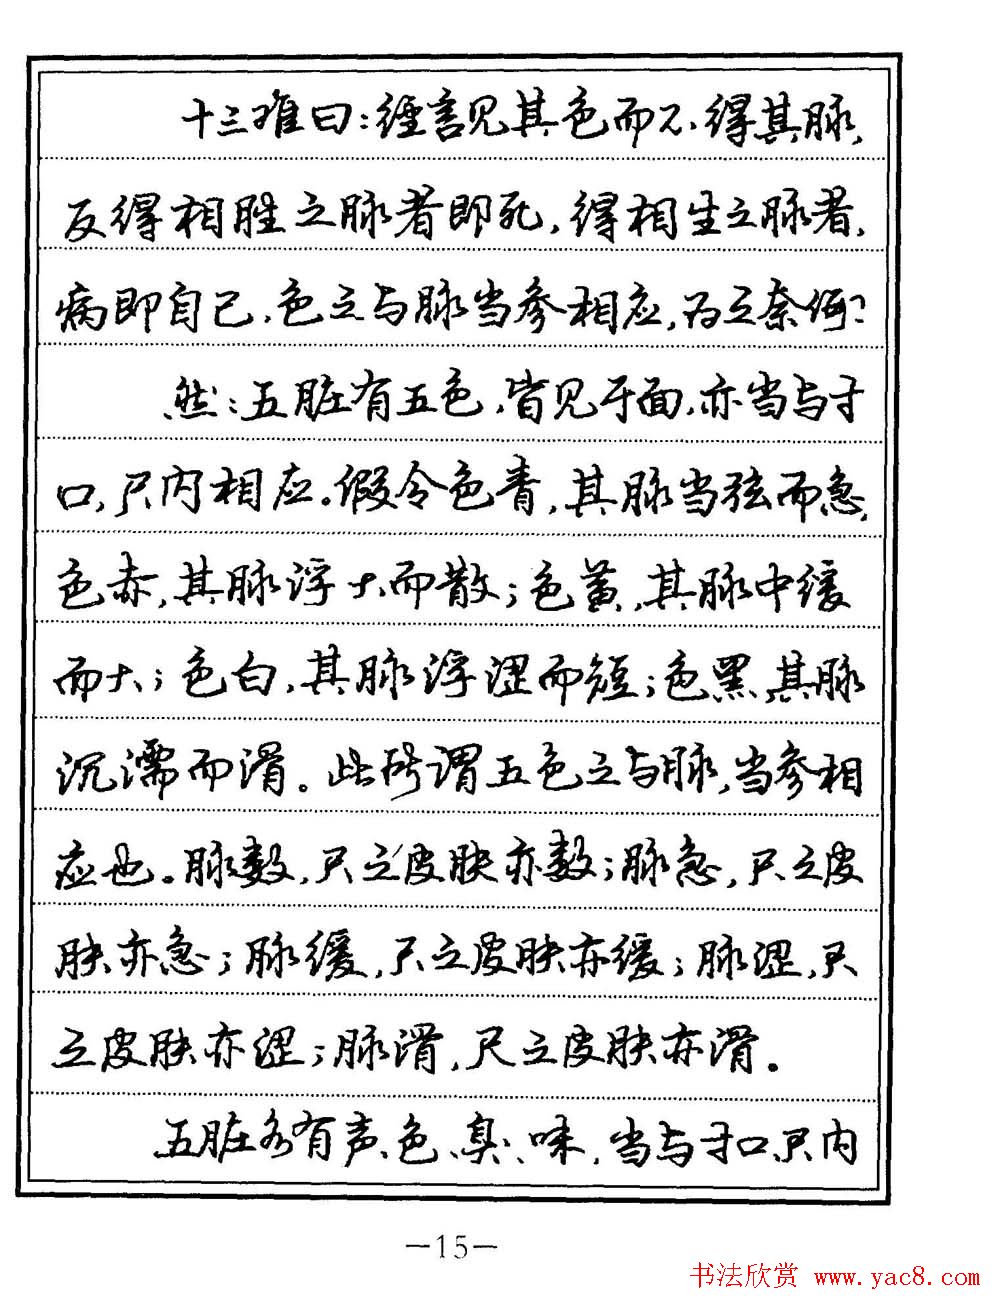 十三难曰：经言见其色而不得其脉，
反得相胜之脉者即死，得相生之脉者，
病即自己，色之与脉当参相应，为之奈何？
然：五脏有五色，皆见于面，亦当与寸
口，尺内相应。假令色青，其脉当弦而急，
色赤，其脉浮大而散；色黄，其脉中缓
而大；色白，其脉浮涩而短；色黑，其脉
沉濡而滑。此所谓五色之与脉，当参相
应也。脉数，尺之皮肤亦数；脉急，尺之皮
肤亦急；脉缓，尺之皮肤亦缓；脉涩，尺
之皮肤亦涩；脉滑，尺之皮肤亦滑。
五脏各有声、色、臭、味，当与寸口、尺内
—15—
书法欣赏 www.yac8.com